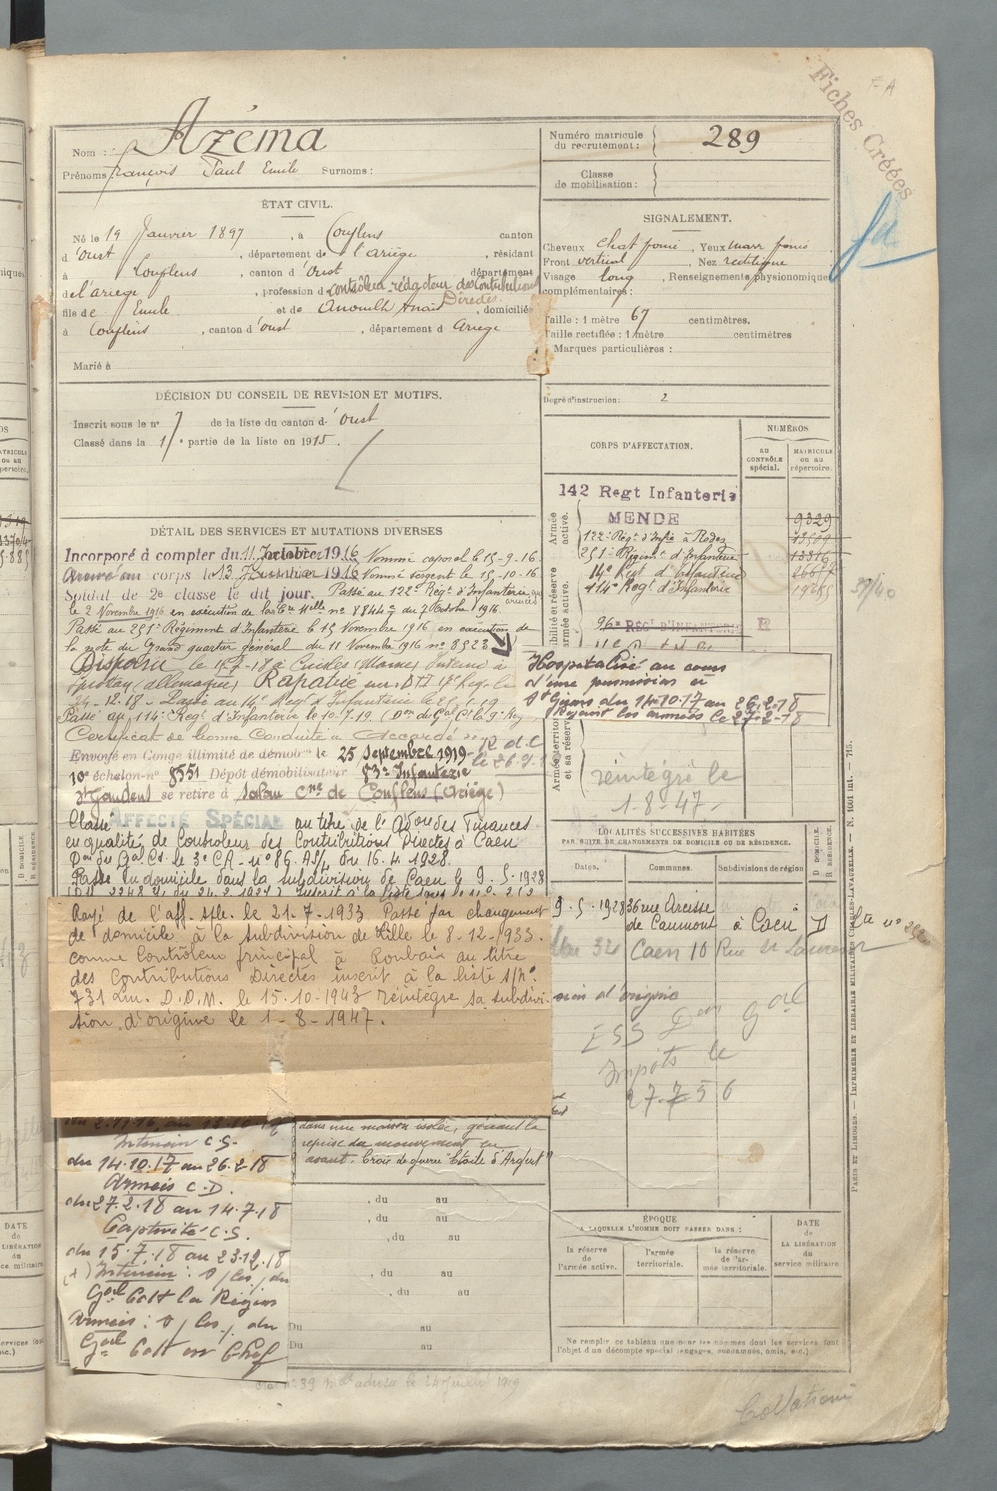 Fiches Créées
Nom : Azéma
Prénoms : François Paul Emile Surnoms :
Numéro matricule du recrutement : 289
Classe de mobilisation :
ÉTAT CIVIL.
Né le 19 Janvier 1897, à Couflens canton
d'Oust, département de l'ariège, résidant
à Couflens, canton d'Oust département
de l'ariege, profession d contrôleur rédacteur des Contributions Directes
fils de Emile et de Anouilh Anaïs, domiciliés
à Couflens, canton d'oust, département d Ariege
Marié à
SIGNALEMENT.
Cheveux chat foncé, Yeux marr foncé
Front vertical Nez rectiligne
Visage long, Renseignements physionomiques
complémentaires :
Taille : 1 mètre 67 centimètres.
Taille rectifiée : 1 mètre centimètres
Marques particulières :
Degré d'instruction : 2
DÉCISION DU CONSEIL DE REVISION ET MOTIFS.
Inscrit sous le no 7 de la liste du canton d'oust
Classé dans la 1re partie de la liste en 1915.
CORPS D'AFFECTATION.
NUMÉROS
au CONTRÔLE spécial.
MATRICULE ou au répertoire.
Armée active.
142 Regt Infanterie
MENDE 9329
122e Régt d'Infie à Rodez
251e Régiment d'Infanterie
14e Regt d'Infanterie
114e Regt d'Infanterie
96e REGt D'INFANTERIE
réintégré le
1-8-47
DÉTAIL DES SERVICES ET MUTATIONS DIVERSES
Incorporé à compter du 11 1916 Nommé caporal le 15-9-16
corps le 13 1916 Nommé sergent le 15-10-16
Soldat de 2e classe le dit jour. Passé au 122e Régt d'Infanterie
le 2 Novembre 1916 en exécution de la Cre Melle no 8444 du 2 Octobre 1916.
Passé au 251e Régiment d'Infanterie le 15 Novembre 1916 en exécution de
la note du Grand quartier général du 11 Novembre 1916 no 8523
Disparu le 15-7-18 à (Marne) Interné à
(allemagne) Rapatrié
24-12-18 - Passé au 14e Regt d'Infanterie le
Passé au 114e Regt d'Infanterie le 10-7-19
Certificat de bonne Conduite Accordé
Envoyé en Congé illimité de démob le 25 Septembre 1919
10e échelon no 8551 Dépôt démobilisateur 83e Infanterie
St Gaudens se retire à Salau Cne de Couflens (Ariège)
Hospitalisé au cours
d'une permission à
St Girons du 14-10-17 au 26-2-18
Rejoint les armées le 27-2-18
Classé AFFECTÉ SPÉCIAL au titre de l'Adon des Finances
en qualité de Controleur des Contributions Directes à Caen
Don du Gal Ct. le 3e CA - no 86 AS/1 du 16.4.1928.
Passé du domicile dans la subdivision de Caen le 9-5-1928
Rayé de l'aff. Sple. le 21-7-1933 Passé par changement
de domicile à la Subdivision de Lille le 8-12-1933.
comme Contrôleur principal à Roubaix au titre
des Contributions Directes inscrit à la liste s/no.
731 D.D.M. le 15-10-1943 réintègre sa subdivi-
sion d'origine le 1-8-1947.
LOCALITÉS SUCCESSIVES HABITÉES
PAR SUITE DE CHANGEMENTS DE DOMICILE OU DE RÉSIDENCE.
Dates. Communes. Subdivisions de région D DOMICILE. R RÉSIDENCE.
9-5-1928 36 rue Arcisse
de Caumont à Caen D
32 Caen 10 Rue St Laurent
d'origine
ESS Don Gal
Impots le
27.7.56
Intérieur C.S.
du 14.10.17 au 26.2.18
Armées C.D.
du 27.2.18 au 14.7.18
Captivité C.S.
du 15.7.18 au 23.12.18
(x) Intérieur : du
Gal Cdt la Région
Armées : du
Gal Cdt en Chef
dans une maison isolée, gênant la
reprise du mouvement en
avant. Croix de guerre "Etoile d'Argent"
, du au
, du au
, du au
, du au
, du au
Du au
Du au
ÉPOQUE
A LAQUELLE L'HOMME DOIT PASSER DANS :
la réserve de l'armée active.
l'armée territoriale.
la réserve de l'armée territoriale.
DATE de LA LIBÉRATION du service militaire.
Ne remplir ce tableau que pour les hommes dont les services font
l'objet d'un décompte spécial (engagés, condamnés, omis, etc.)
PARIS ET LIMOGES. — IMPRIMERIE ET LIBRAIRIE MILITAIRES CHARLES-LAVAUZELLE.